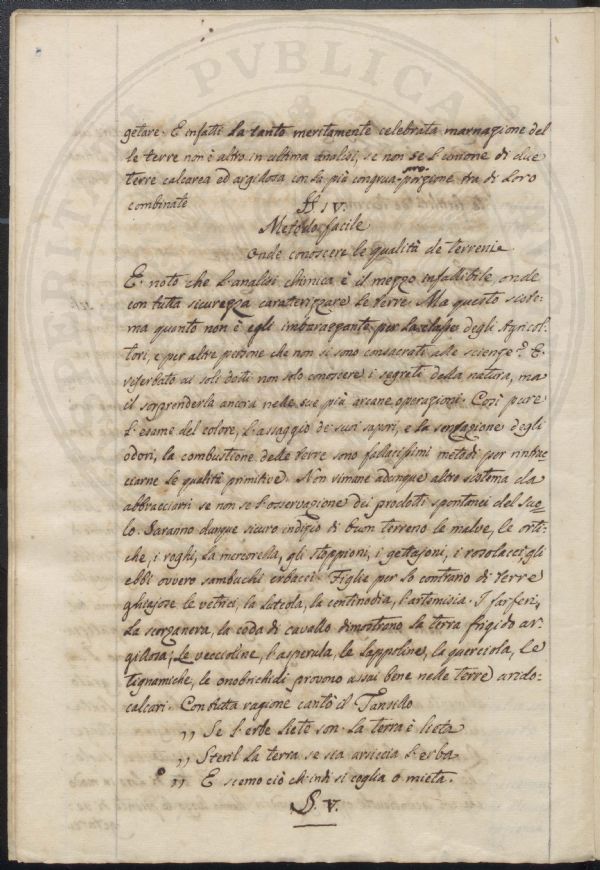 getare. E infatti la tanto meritamente celebrata marnazione del
le terre non è altro in ultima analisi, se non se l'unione di due
terre calcarea ed argillosa con la più congrua proporzione tra di loro
combinate
§. IV.
Metodo facile
Onde conoscere le qualità de terreni
E noto che l'analisi chimica è il mezzo infallibile onde
con tutta sicurezza caraterizzare le terre. Ma questo siste-
ma quanto non è egli imbarazzante per la classe degli Agricol-
tori, e per altre persone che non si sono consacrate alle scienze? E
riserbato ai soli dotti non solo conoscere i segreti della natura, ma
il sorprenderla ancora nelle sue più arcane operazioni. Così pure
l'esame del colore, l'assaggio de' suoi sapori, e la sensazione degli
odori, la combustione delle terre sono fallacissimi metodi per rintrac
ciarne le qualità primitive. Non rimane adunque altro sistema da
abbracciarsi se non se l'osservazione dei prodotti spontanei del suo-
lo. Saranno dunque sicuro indizio di buon terreno le malve, le orti-
che, i roghi, la mercorella, gli stoppioni, i gettajoni, i rosolacci, gli
ebbi ovvero sambuchi erbacei. Figlie per lo contrario di terre
ghiajose le vetrici, la luteola, la centinodia, l'artemisia. I farferi,
la scorzanera, la coda di cavallo dimostrono la terra frigido ar-
gillosa; le veccioline, l'asperula, le lappoline, la querciola, le
tignamiche, le onobrichidi provono assai bene nelle terre arido-
calcari. Con tutta ragione cantò il Tansillo
,, Se l'erbe liete son la terra è lieta
,, Steril la terra se sia arsiccia l'erba
,, E scemo ciò ch'indi si coglia o mieta.
§. V.